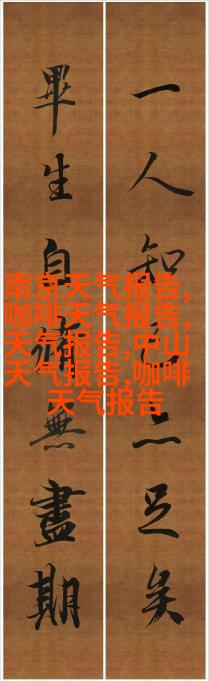 一人知己亦足矣
畢生自無盡期
南京天气报告,
咖啡天气报告,
天气报告,中山
天气报告,咖啡
天气报告